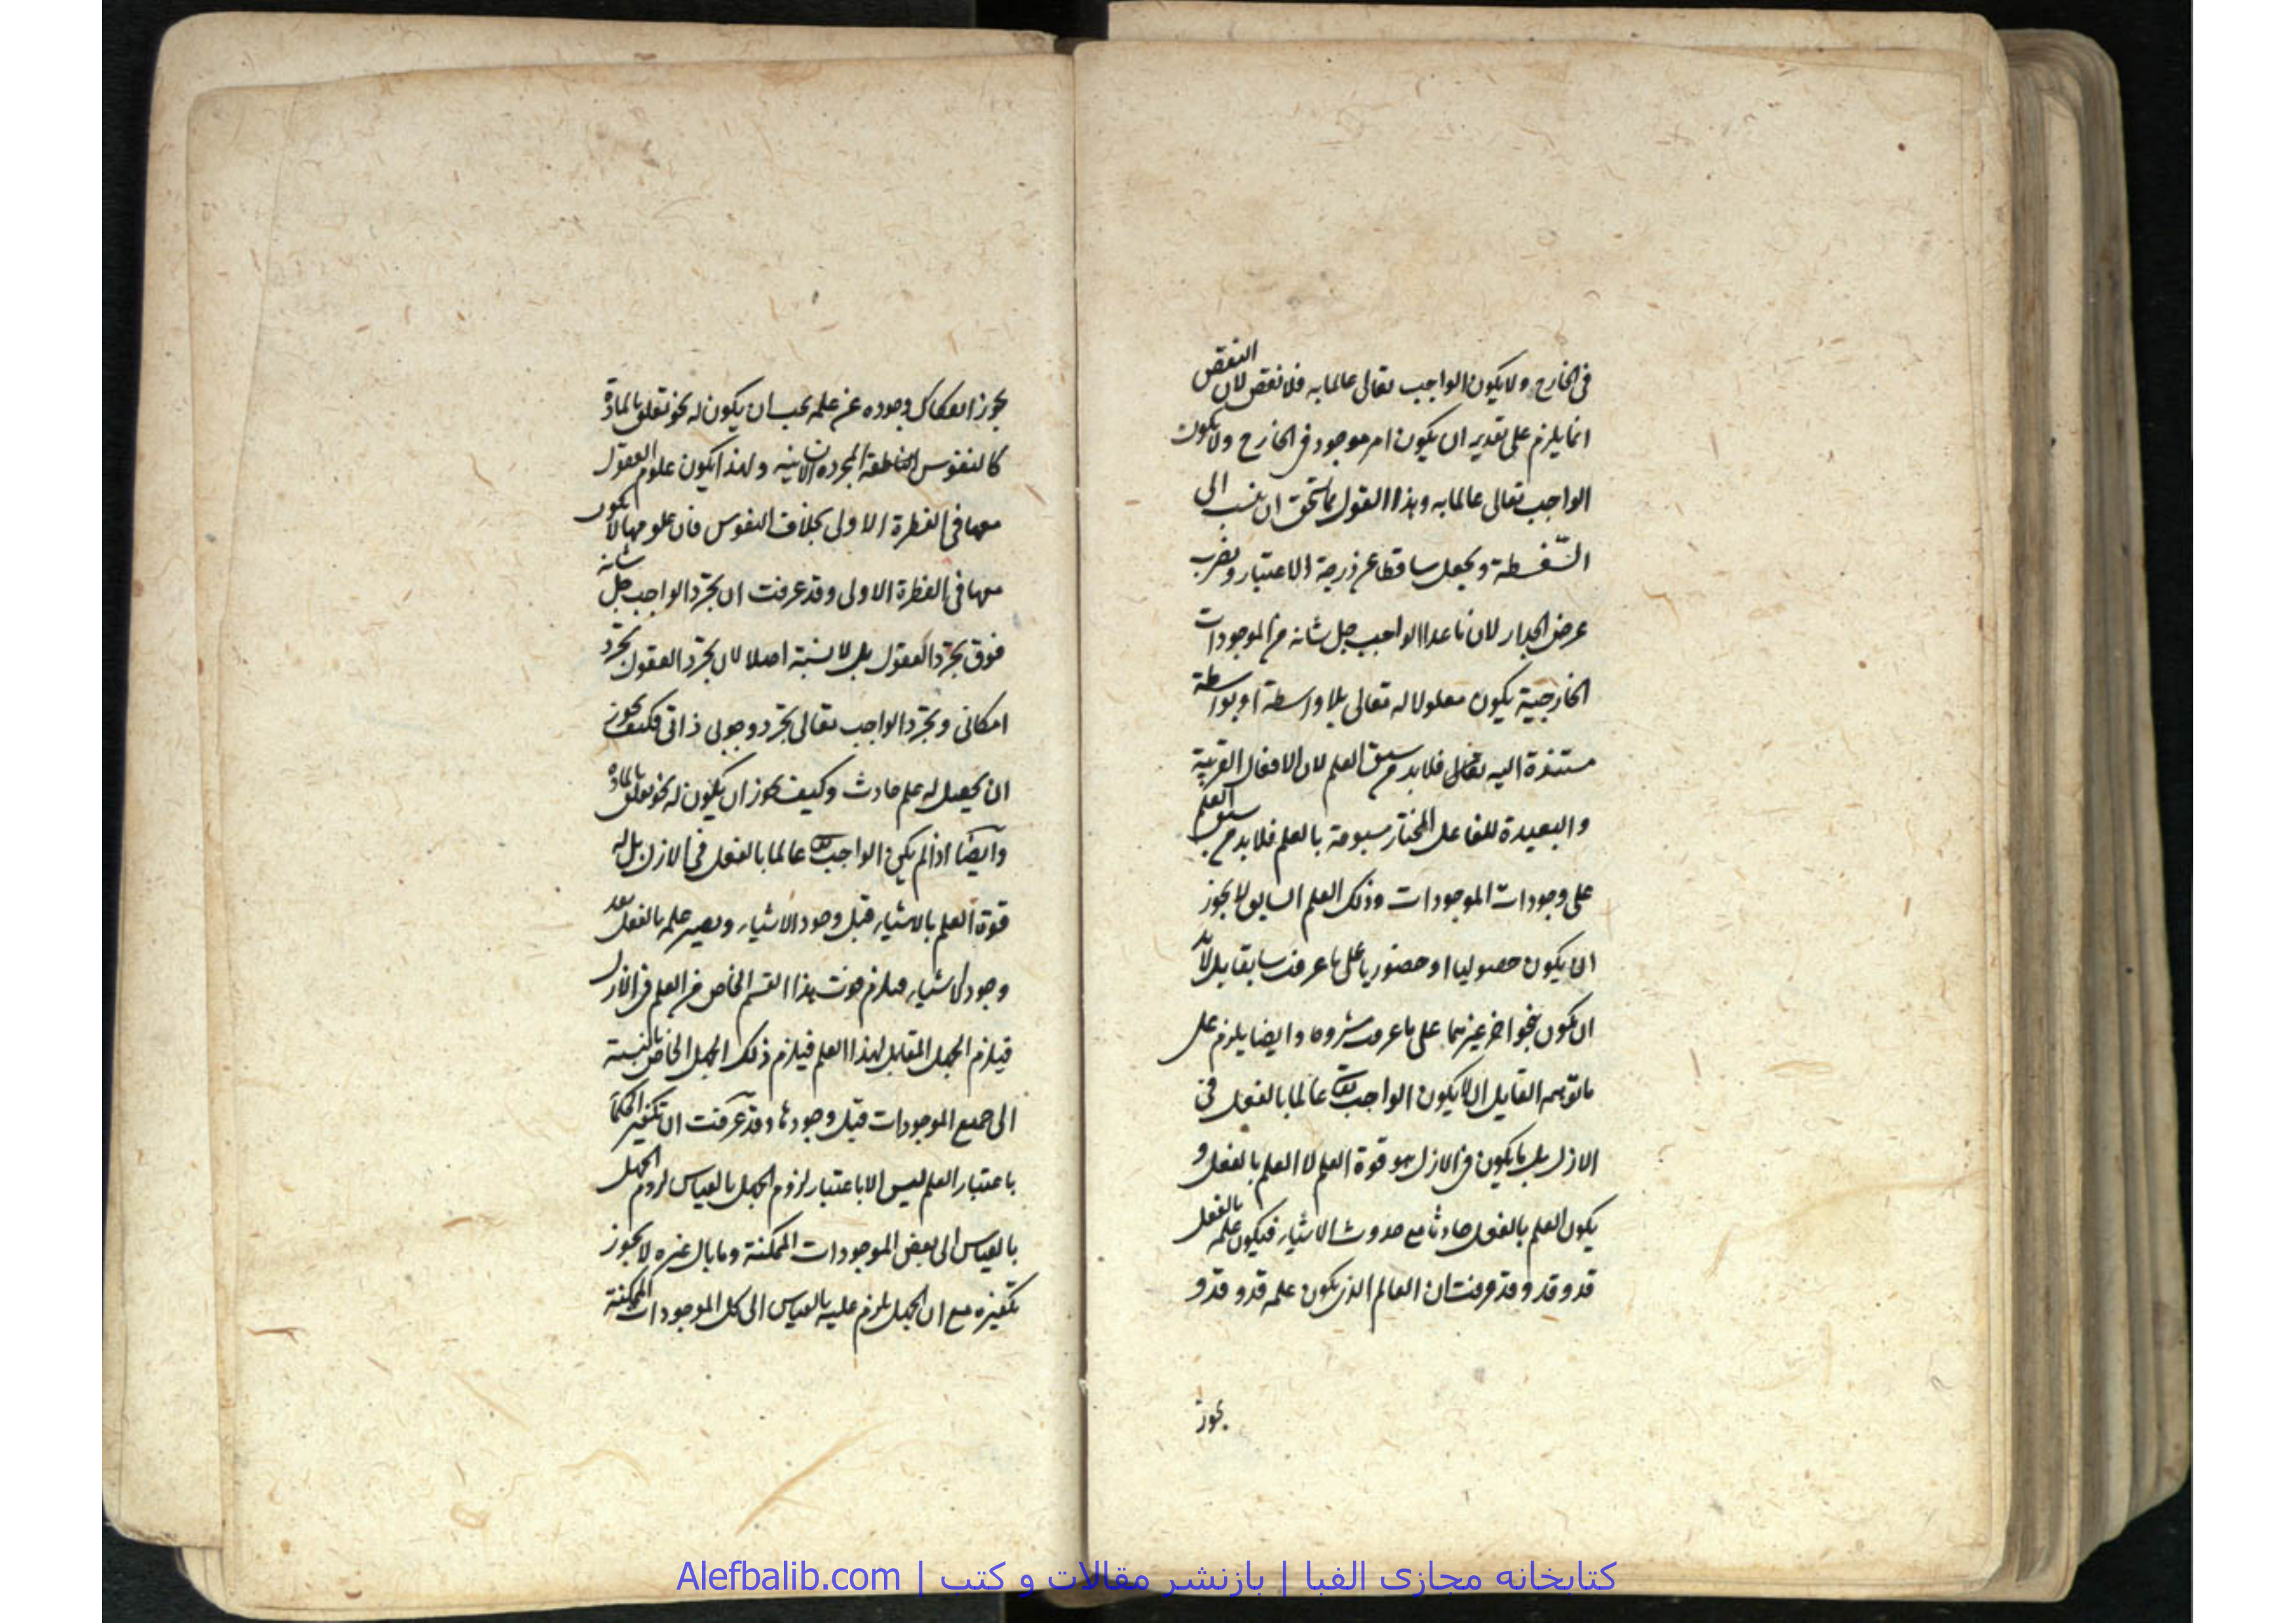 في الخارج ولا يكون الواجب تعالى عالما به فلا نقص لان النقص
انما يلزم على تقدير ان يكون امر موجود في الخارج ولا يكون
الواجب تعالى عالما به وهذا القول مما يستحق ان ينسب الى
السّفسطة ويجعل ساقطا عن درجة الاعتبار ويضرب
عرض الجدار لان ما عدا الواجب جل شانه من الموجودات
الخارجية يكون معلولا له تعالى بلا واسطة او بواسطة
مستندة اليه تعالى فلا بد من سبق العلم لان الافعال القريبة
والبعيدة للفاعل المختار مسبوقة بالعلم فلا بد من سبق العلم
على وجودات الموجودات وذلك العلم السابق لا يجوز
ان يكون حصوليا او حضوريا على ما عرفت سابقا بل لا بد
ان يكون بنحو اخر غيرهما على ما عرفت مشروحا وايضا يلزم على
ما توهمه القايل ان لا يكون الواجب تعالى عالما بالفعل في
الازل بل ما يكون في الازل هو قوة العلم لا العلم بالفعل و
يكون العلم بالفعل حادثا مع حدوث الاشياء فيكون علمه بالفعل
قد وقد وقد عرفت ان العالم الذي يكون علمه قد وقد و
يجوز
يجوز انفكاك وجوده عن علمه يجب ان يكون له نحو تعلق بالمادة
كالنفوس الناطقة المجردة الانسانية ولهذا يكون علوم العقول
معها في الفطرة الاولى بخلاف النفوس فان علومها لا يكون
معها في الفطرة الاولى وقد عرفت ان تجرّد الواجب جل شانه
فوق تجرّد العقول بل لا نسبة اصلا لان تجرّد العقول تجرّد
امكانى وتجرّد الواجب تعالى تجرّد وجوبى ذاتى فكيف يجوز
ان يحصل له علم حادث وكيف يجوز ان يكون له نحو تعلق بالمادة
وايضا اذا لم يكن الواجب تعالى عالما بالفعل في الازل بل له
قوة العلم بالاشياء قبل وجود الاشياء ويصير علمه بالفعل بعد
وجود الاشياء فيلزم فوت هذا القسم الخاص من العلم في الازل
فيلزم الجهل المقابل لهذا العلم فيلزم ذلك الجهل الخاص بالنسبة
الى جميع الموجودات قبل وجودها وقد عرفت ان تكفير الحكما
باعتبار العلم ليس الا باعتبار لزوم الجهل بالقياس لزوم الجهل
بالقياس الى بعض الموجودات الممكنة وما بال غيره لا يجوز
تكفيره مع ان الجهل يلزم عليه بالقياس الى كل الموجودات الممكنة
کتابخانه مجازی الفبا | بازنشر مقالات و کتب | Alefbalib.com